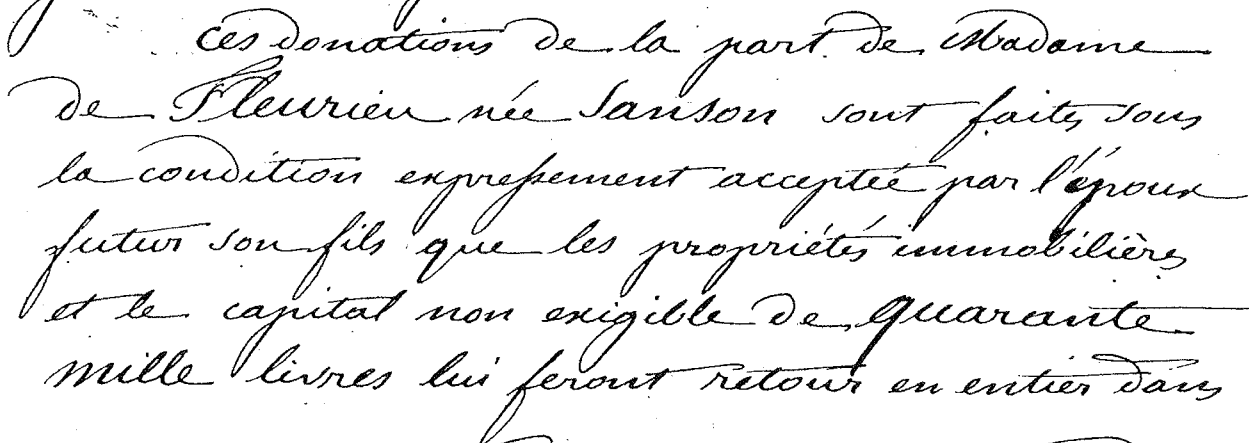 Ces donations de la part de Madame
de Fleurieu née Sanson sont faites sous
la condition expressement acceptée par l'époux
futur son fils que les propriétés immobilières
et le capital non exigible de quarante
mille livres lui feront retour en entier dans